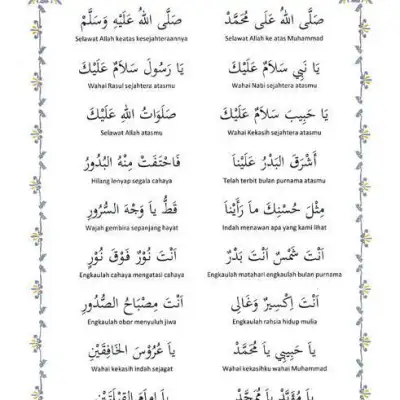 صَلَّى اللهُ عَلَى مُحَمَّدْ
Selawat Allah ke atas Muhammad
صَلَّى اللهُ عَلَيْهِ وَسَلَّمْ
Selawat Allah keatas kesejahteraannya
يَا نَبِي سَلاَمٌ عَلَيْكَ
Wahai Nabi sejahtera atasmu
يَا رَسُولَ سَلاَمٌ عَلَيْكَ
Wahai Rasul sejahtera atasmu
يَا حَبِيبَ سَلاَمٌ عَلَيْكَ
Wahai Kekasih sejahtera atasmu
صَلَوَاتُ اللهِ عَلَيْكَ
Selawat Allah atasmu
أَشْرَقَ الْبَدْرُ عَلَيْنَا
Telah terbit bulan purnama atasmu
فَاخْتَفَتْ مِنْهُ الْبُدُورُ
Hilang lenyap segala cahaya
مِثْلَ حُسْنِكَ مَا رَأَيْنَا
Indah menawan apa yang kami lihat
قَطُّ يَا وَجْهَ السُّرُورِ
Wajah gembira sepanjang hayat
اَنْتَ شَمْسٌ اَنْتَ بَدْرٌ
Engkaulah matahari engkaulah bulan purnama
اَنْتَ نُوْرٌ فَوْقَ نُوْرٍ
Engkaulah cahaya mengatasi cahaya
اَنْتَ اِكْسِيرٌ وَغَالِي
Engkaulah rahsia hidup mulia
اَنْتَ مِصْبَاحُ الصُّدُورِ
Engkaulah obor menyuluh jiwa
يَا حَبِيبِي يَا مُحَمَّدْ
Wahai kekasihku wahai Muhammad
يَا عَرُوْسَ الْخَافِقَيْنِ
Wahai kekasih indah sejagat
يَا مُؤَيَّدْ يَا مُمَجَّدْ
يَا اِمَامَ الْقِبْلَتَيْنِ